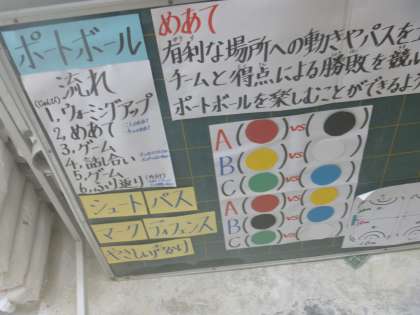 ポートボール
流れ
1,ウォーミングアップ
2,めあて
3,ゲーム
4,話し合い
5,ゲーム
6,ふり返り
シュート パス
マーク ディフェンス
やさしい
めあて
有利な場所への動きやパスを
チームと得点による勝敗を競い
ポートボールを楽しむことができるよ
A ( ) vs ( )
B ( ) vs ( )
C ( ) vs ( )
A ( ) vs ( )
B ( ) vs ( )
C ( ) vs ( )